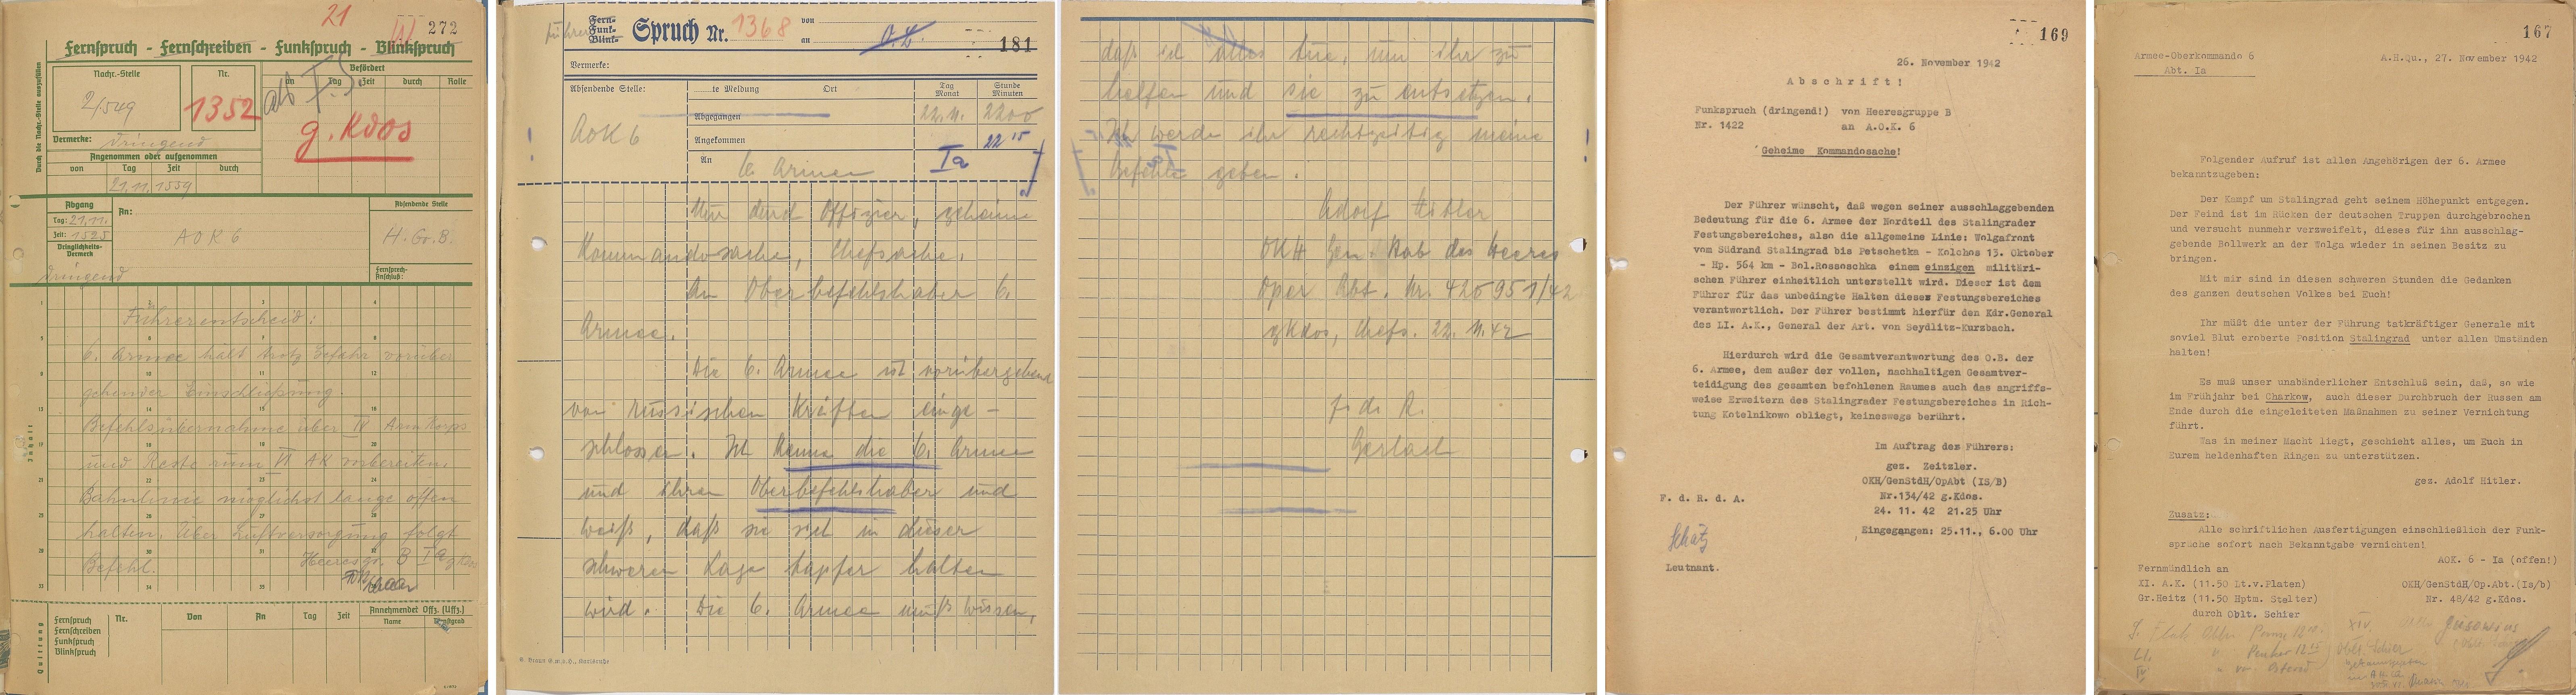 21
272
Fernspruch - Fernschreiben - Funkspruch - Blinkspruch
Durch die Nachr.-Stelle auszufüllen
Nachr.-Stelle
Nr.
Befördert
an
Tag
Zeit
durch
Rolle
2/549
1352
als
g. Kdos
Vermerke: Dringend
Angenommen oder aufgenommen
von
Tag
Zeit
durch
21.11. 1559
Abgang
An:
Absendende Stelle
Tag: 21.11.
Zeit: 1525
AOK 6
H.Gr.B.
Dringlichkeits-
Vermerk
Dringend
Fernsprech-
Anschluß:
Inhalt
Führerentscheid:
6. Armee hält trotz Gefahr vorüber
gehender Einschließung.
Befehlsübernahme über IV Arm Korps
und Reste rum. VI AK vorbereiten.
Bahnlinie möglichst lange offen
halten. Über Luftversorgung folgt
Befehl.
Heeresgr. B Ia
Quittung
Fernspruch
Fernschreiben
Funkspruch
Blinkspruch
Nr.
Von
An
Tag
Zeit
Annehmender Offz. (Uffz.)
Name
Dienstgrad
Führer
Fern-
Funk-
Blink-
Spruch Nr. 1368
von
an
181
Vermerke:
Absendende Stelle:
te Meldung
Ort
Tag
Monat
Stunde
Minuten
AOK 6
Abgegangen
22.11.
2200
Angekommen
22 15
An
6. Armee
Ia
Nur durch Offizier, geheime
Kommandosache, Chefsache.
An Oberbefehlshaber 6.
Armee.
Die 6. Armee ist vorübergehend
von russischen Kräften einge-
schlossen. Ich kenne die 6. Armee
und ihren Oberbefehlshaber und
weiß, daß sie sich in dieser
schweren Lage tapfer halten
wird. Die 6. Armee muß wissen,
daß ich alles tue, um ihr zu
helfen und sie zu entsetzen.
Ich werde ihr rechtzeitig meine
Befehle geben.
Adolf Hitler
OKH Gen. Stab des Heeres
Oper Abt. Nr. 420951/42
gKdos, Chefs. 22.11.42
f. d. R.
Gerlach
169
26. November 1942
Abschrift!
Funkspruch (dringend!) von Heeresgruppe B
Nr. 1422 an A.O.K. 6
Geheime Kommandosache!
Der Führer wünscht, daß wegen seiner ausschlaggebenden
Bedeutung für die 6. Armee der Nordteil des Stalingrader
Festungsbereiches, also die allgemeine Linie: Wolgafront
vom Südrand Stalingrad bis Petschetka - Kolchos 13. Oktober
- Hp. 564 km - Bol.Rossoschka einem einzigen militäri-
schen Führer einheitlich unterstellt wird. Dieser ist dem
Führer für das unbedingte Halten dieses Festungsbereiches
verantwortlich. Der Führer bestimmt hierfür den Kdr.General
des LI. A.K., General der Art. von Seydlitz-Kurzbach.
Hierdurch wird die Gesamtverantwortung des O.B. der
6. Armee, dem außer der vollen, nachhaltigen Gesamtver-
teidigung des gesamten befohlenen Raumes auch das angriffs-
weise Erweitern des Stalingrader Festungsbereiches in Rich-
tung Kotelnikowo obliegt, keineswegs berührt.
Im Auftrag des Führers:
gez. Zeitzler.
OKH/GenStdH/OpAbt (IS/B)
Nr.134/42 g.Kdos.
24. 11. 42 21.25 Uhr
Eingegangen: 25.11., 6.00 Uhr
F. d. R. d. A.
Schatz
Leutnant.
167
Armee-Oberkommando 6
Abt. Ia
A.H.Qu., 27. November 1942
Folgender Aufruf ist allen Angehörigen der 6. Armee
bekanntzugeben:
Der Kampf um Stalingrad geht seinem Höhepunkt entgegen.
Der Feind ist im Rücken der deutschen Truppen durchgebrochen
und versucht nunmehr verzweifelt, dieses für ihn ausschlag-
gebende Bollwerk an der Wolga wieder in seinen Besitz zu
bringen.
Mit mir sind in diesen schweren Stunden die Gedanken
des ganzen deutschen Volkes bei Euch!
Ihr müßt die unter der Führung tatkräftiger Generale mit
soviel Blut eroberte Position Stalingrad unter allen Umständen
halten!
Es muß unser unabänderlicher Entschluß sein, daß, so wie
im Frühjahr bei Charkow, auch dieser Durchbruch der Russen am
Ende durch die eingeleiteten Maßnahmen zu seiner Vernichtung
führt.
Was in meiner Macht liegt, geschieht alles, um Euch in
Eurem heldenhaften Ringen zu unterstützen.
gez. Adolf Hitler.
Zusatz:
Alle schriftlichen Ausfertigungen einschließlich der Funk-
sprüche sofort nach Bekanntgabe vernichten!
AOK. 6 - Ia (offen!)
Fernmündlich an
XI. A.K. (11.50 Lt.v.Platen)
Gr.Heitz (11.50 Hptm. Stelter)
durch Oblt. Schier
OKH/GenStdH/Op.Abt.(Is/b)
Nr. 48/42 g.Kdos.